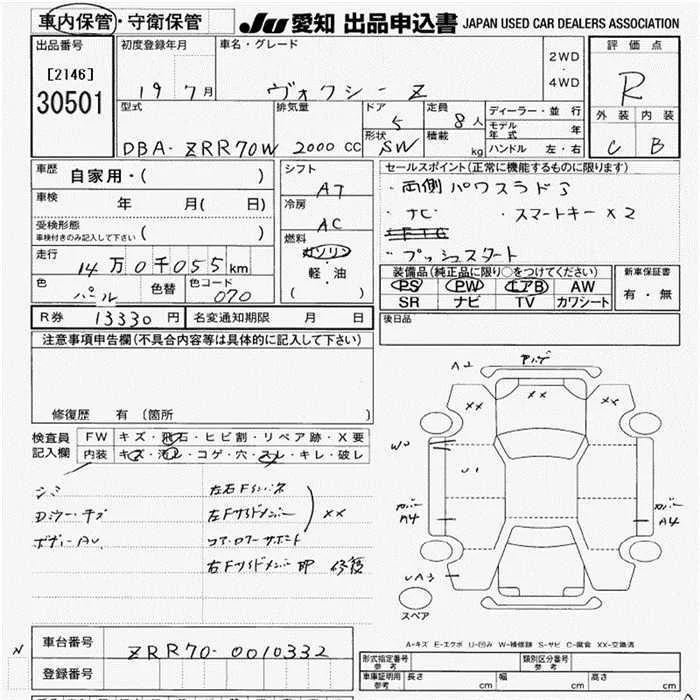 車内保管・守衛保管 JU 愛知 出品申込書 JAPAN USED CAR DEALERS ASSOCIATION
出品番号 初度登録年月 車名・グレード 評価点
[2146] 2WD
・
30501 19 7月 ヴォクシーZ 4WD R
型式 排気量 ドア 定員 ディーラー・並行 外装 内装
5 8人 モデル年式 年
DBA-ZRR70W 2000 CC 形状 SW 積載 kg ハンドル 左・右 C B
車歴 自家用・( ) シフト セールスポイント(正常に機能するものに限ります)
AT ・両側パワスラドア
車検 年 月( 日) 冷房 AC ・ナビ ・スマートキーX2
受検形態
車検付きのみ記入して下さい 燃料 ETC
走行 14万0千055km ガソリン ・プッシュスタート
色 パール 色替 色コード 070 軽・油 装備品(純正品に限り○をつけてください) 新車保証書
( ) PS PW エアB AW 有・無
SR ナビ TV カワシート
R券 13330円 名変通知期限 月 日 後日品
注意事項申告欄(不具合内容等は具体的に記入して下さい)
修復歴 有 (箇所 )
検査員 FW キズ・飛石・ヒビ割・リペア跡・X要
記入欄 内装 キズ・汚レ・コゲ・穴・スレ・キレ・破レ
A2
XX XX XX
W0 U1
カバー A4 カバー A4
UA3
スペア
シミ
Dミラーキズ 左Fサイドメンバー XX
ボディーAU コアロアサポート
右Fサイドメンバー 即 修復
A-キズ E-エクボ U-凹み W-補修跡 S-サビ C-腐食 XX-交換済
N 車台番号 ZRR70-0010332
登録番号
形式指定番号 参考 類別区分番号 参考
車庫証明用 参考 長さ cm 幅 cm 高さ cm